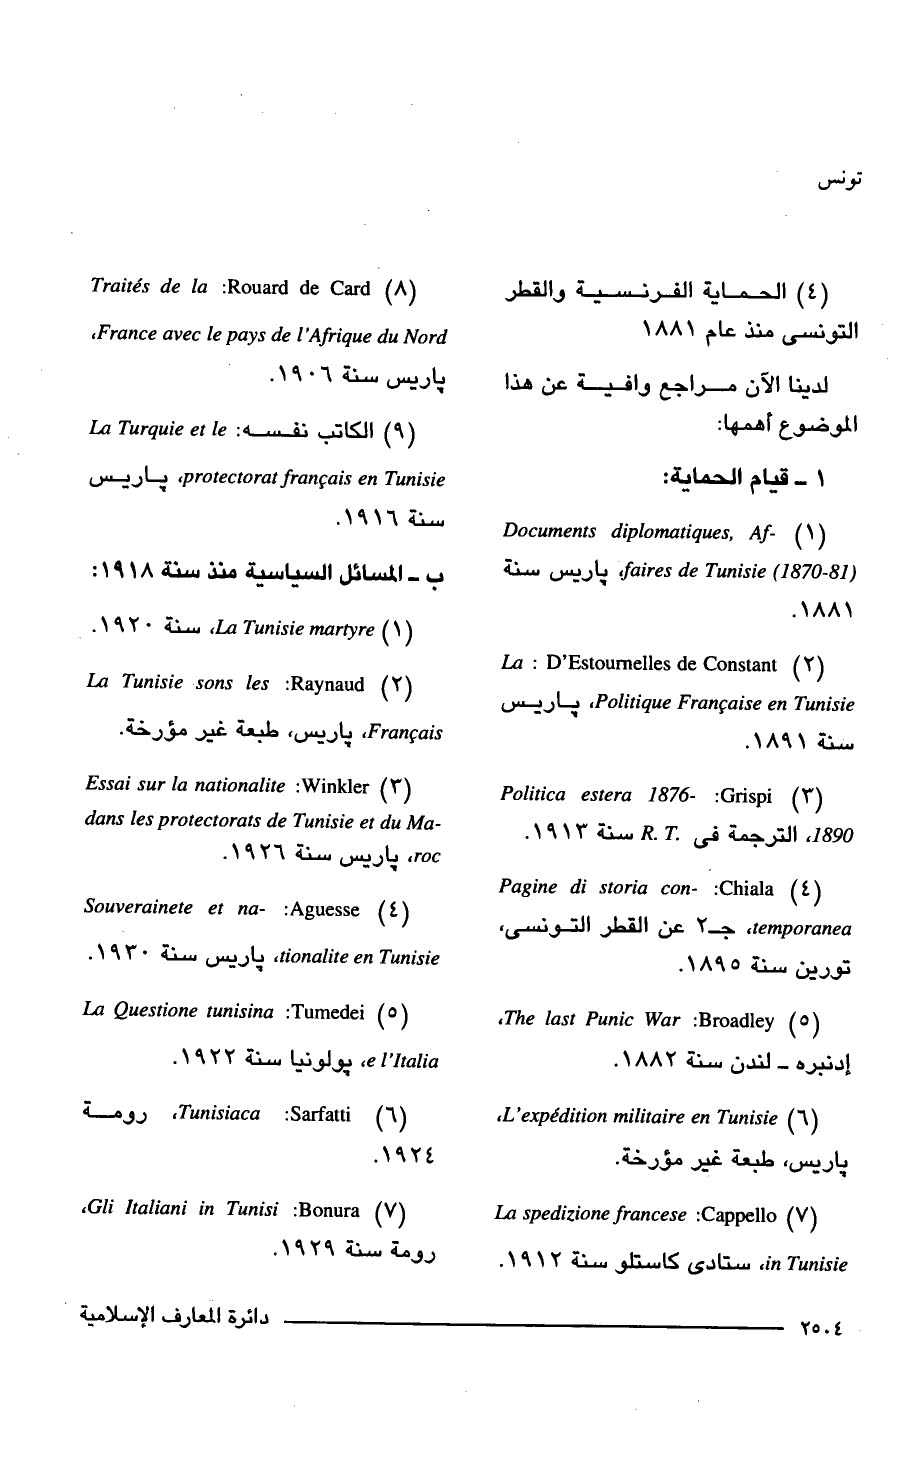 تونس
(٤) الحماية الفرنسية والقطر
التونسى منذ عام ١٨٨١
لدينا الآن مراجع وافية عن هذا
الموضوع أهمها:
١ - قيام الحماية:
(١) Documents diplomatiques, Af-
faires de Tunisie (1870-81)، پاريس سنة
١٨٨١.
(٢) D'Estournelles de Constant : La
Politique Française en Tunisie، پاريس
سنة ١٨٩١.
(٣) Grispi: Politica estera 1876-
1890، الترجمة فى R. T. سنة ١٩١٣.
(٤) Chiala: Pagine di storia con-
temporanea، جـ٢ عن القطر التونسى،
تورين سنة ١٨٩٥.
(٥) Broadley: The last Punic War،
إدنبره - لندن سنة ١٨٨٢.
(٦) L'expédition militaire en Tunisie،
پاريس، طبعة غير مؤرخة.
(٧) Cappello: La spedizione francese
in Tunisie، ستادى كاستلو سنة ١٩١٢.
(٨) Rouard de Card: Traités de la
France avec le pays de l'Afrique du Nord،
پاريس سنة ١٩٠٦.
(٩) الكاتب نفسه: La Turquie et le
protectorat français en Tunisie، پاريس
سنة ١٩١٦.
ب - المسائل السياسية منذ سنة ١٩١٨:
(١) La Tunisie martyre، سنة ١٩٢٠.
(٢) Raynaud: La Tunisie sons les
Français، پاريس، طبعة غير مؤرخة.
(٣) Winkler: Essai sur la nationalite
dans les protectorats de Tunisie et du Ma-
roc، پاريس سنة ١٩٢٦.
(٤) Aguesse: Souverainete et na-
tionalite en Tunisie، پاريس سنة ١٩٣٠.
(٥) Tumedei: La Questione tunisina
e l'Italia، پولونيا سنة ١٩٢٢.
(٦) Sarfatti: Tunisiaca، رومة
١٩٢٤.
(٧) Bonura: Gli Italiani in Tunisi،
رومة سنة ١٩٢٩.
٢٥٠٤ دائرة المعارف الإسلامية